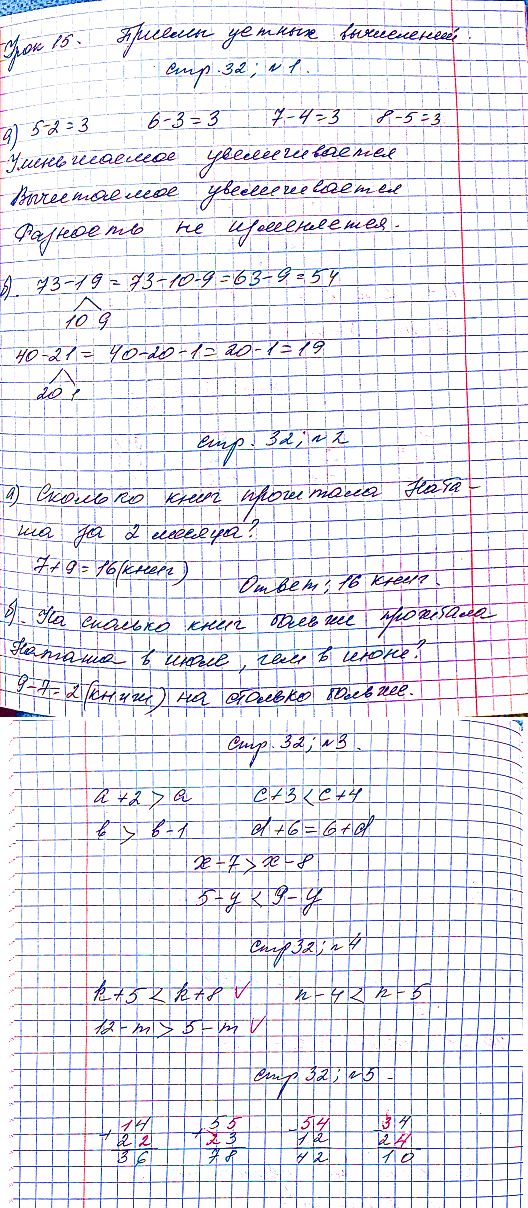 Урок 15. Приемы устных вычислений.
стр. 32; №1.
а) 5-2=3 6-3=3 7-4=3 8-5=3
Уменьшаемое увеличивается
Вычитаемое увеличивается
Разность не изменяется.
б). 73-19=73-10-9=63-9=54
10 9
40-21=40-20-1=20-1=19
20 1
стр. 32; №2
а) Сколько книг прочитала Ната-
ша за 2 месяца?
7+9=16(книг)
Ответ; 16 книг.
б). На сколько книг больше прочитала
Наташа в июле, чем в июне?
9-7=2(книги) на столько больше.
стр. 32; №3.
a+2>a c+3<c+4
b>b-1 d+6=6+d
x-7>x-8
5-y<9-y
стр 32; №4
k+5<k+8 ✓ n-4<n-5
12-m>5-m ✓
стр 32; №5.
14 55 54 34
+22 +23 -12 -24
36 78 42 10